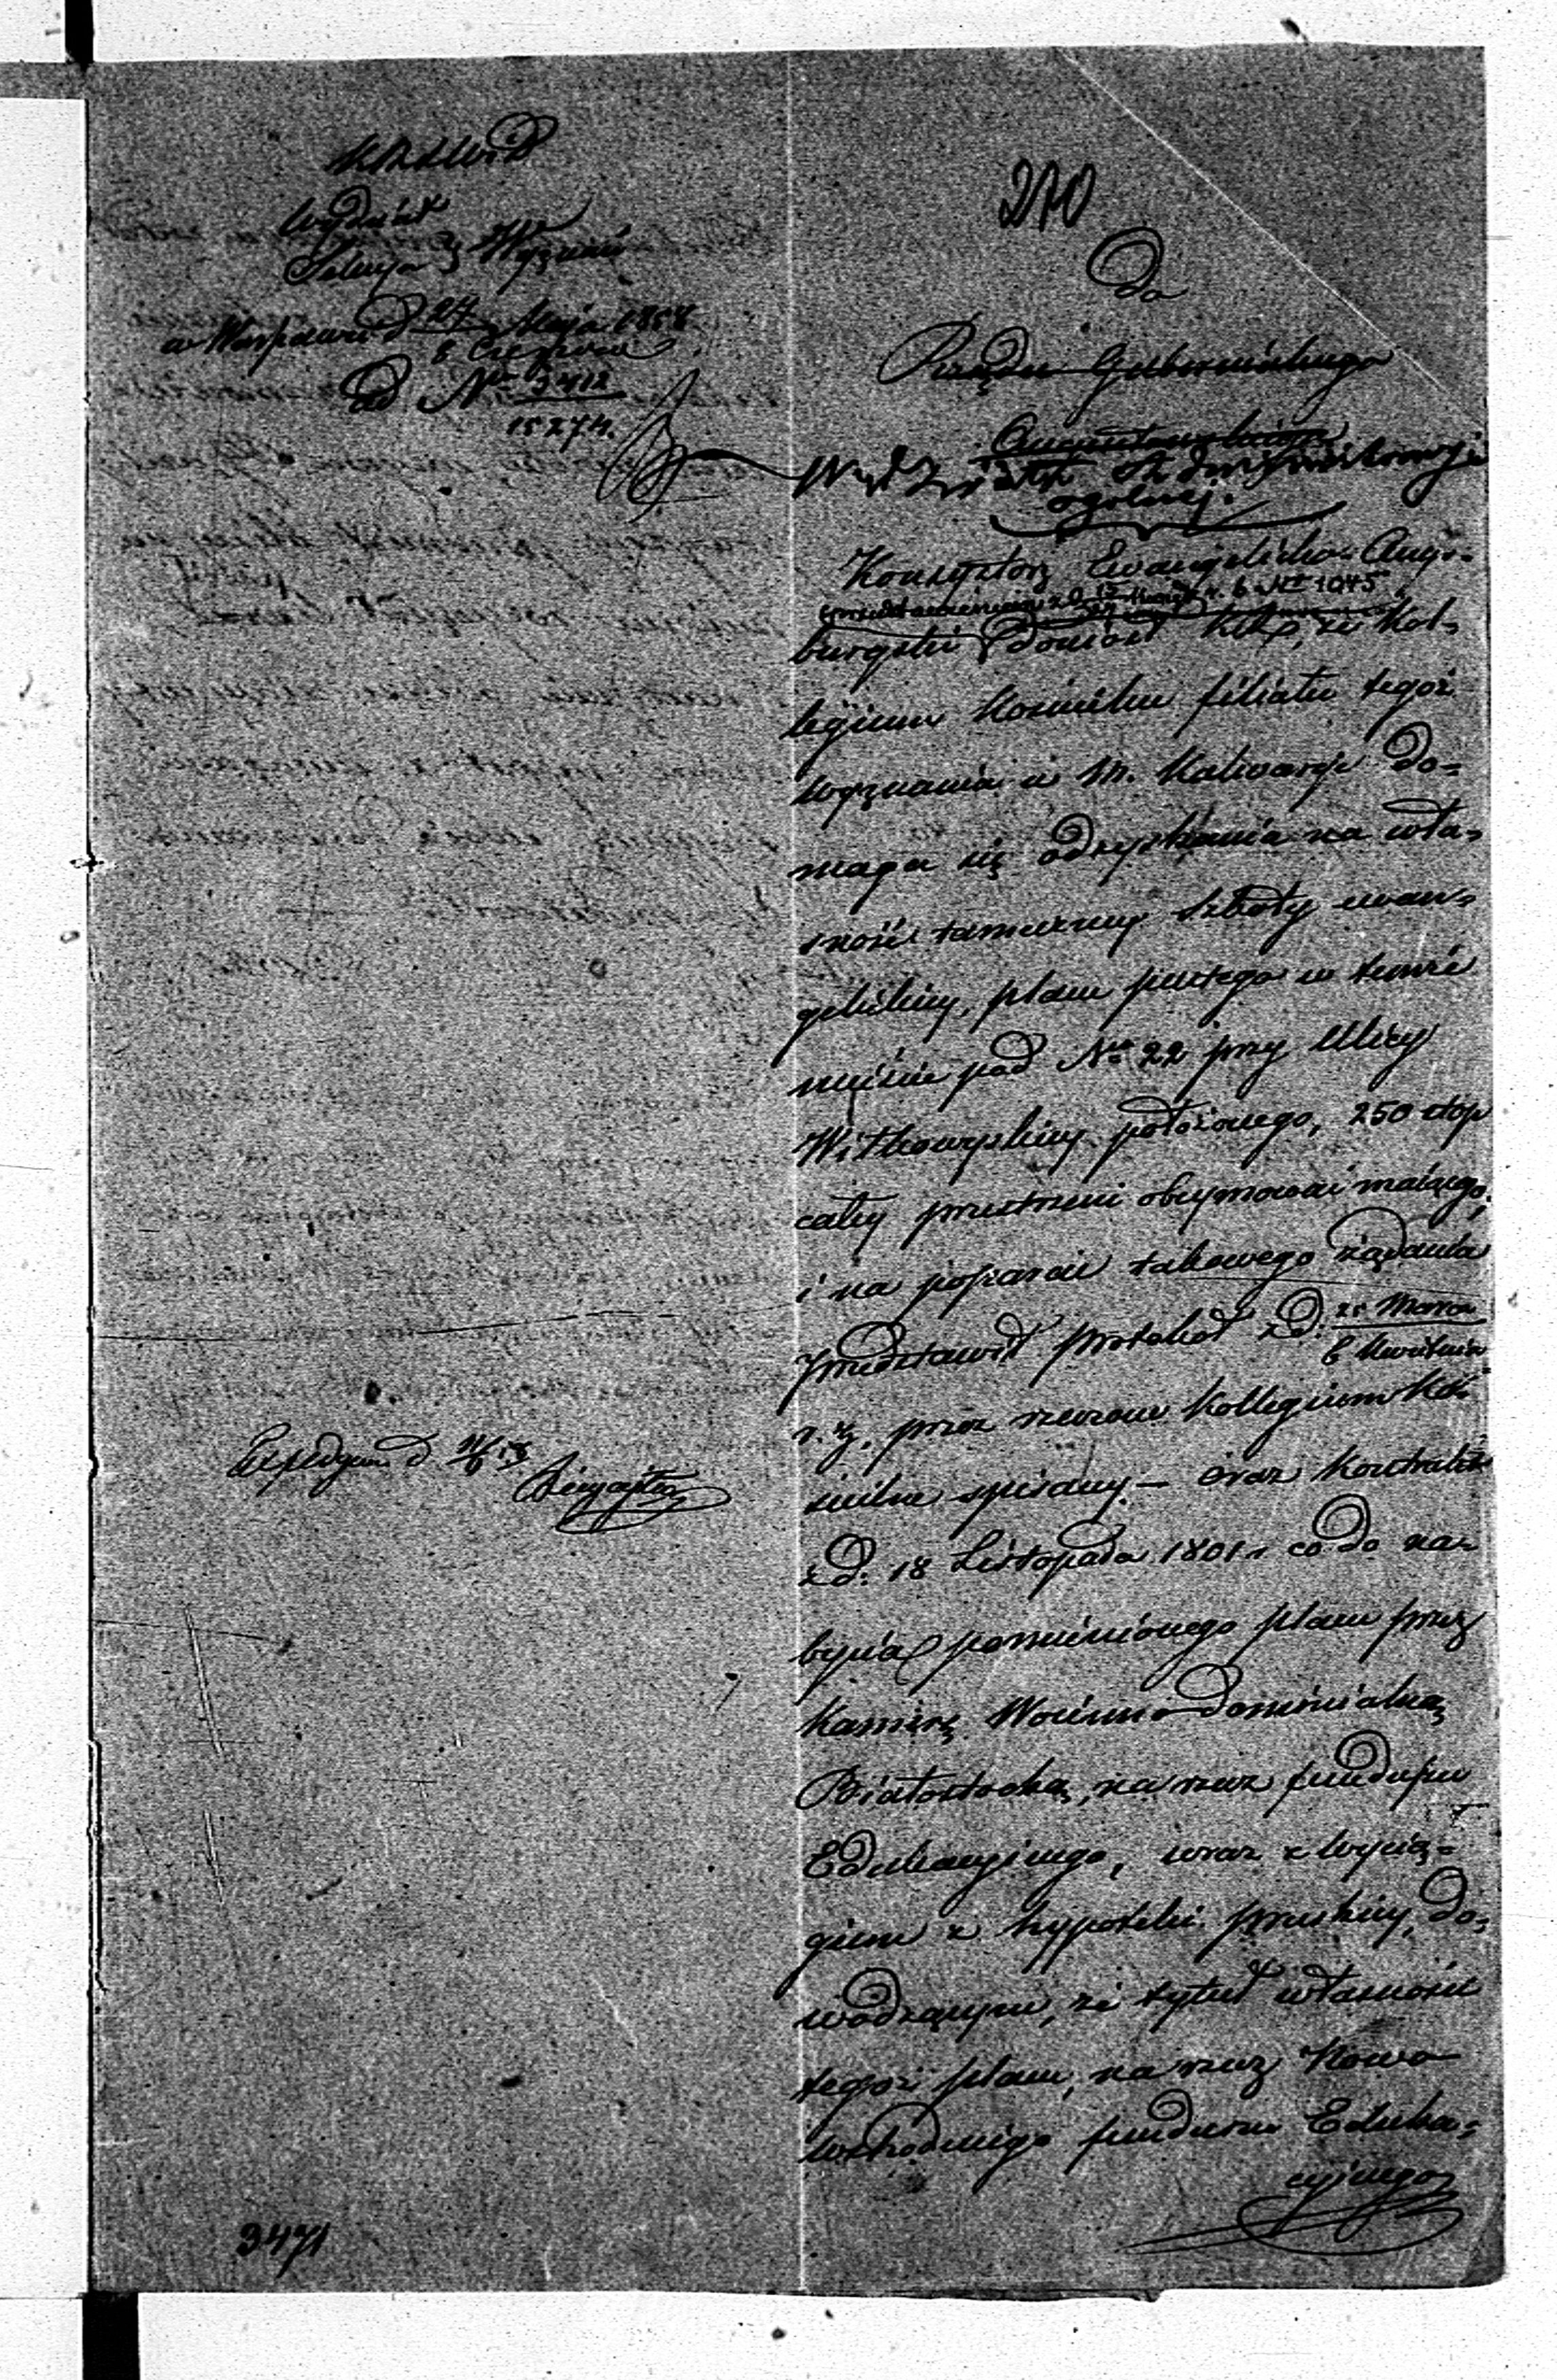 Wydział
Sekcya Wyznań
w Warszawie d 27 Maja 1858
8 Czerwca
Ad Nr 3412
15274.
210
Do
Rządu Gubernialnego
Augustowskiego
Wydział Administracyi
ogólnej.
Konsystorz Ewangelicko-Augs-
Nr 1045
burgski doniósł że Kol-
legium Kościelne filiału tegoż
wyznania w m. Kalwaryi do-
maga się odzyskania na wła-
sność tamecznej szkoły ewan-
gelickiej, placu pustego w temże
mieście pod Nr 22 przy Ulicy
Witkowyskiey położonego, 250 stóp
całej przestrzeni obejmować maiącego,
i na poparcie takowego żądania
przedstawił protokół z d. 25 Marca
6 Kwietnia
r. b. przez rzeczone Kollegium Koś-
cielne spisany – oraz Kontrakt
z d. 18 Listopada 1801 r co do na-
bycia pomienionego placu przez
Kamerę Woienno Dominialną
Białostocką, na rzecz funduszu
Edukacyjnego, wraz z wycią-
giem z hypoteki pruskiej, do-
wodzącym, że tytuł własności
tegoż placu, na rzecz Nowo
wschodniego funduszu Eduka-
cyjnego
Expedyow. d
3471